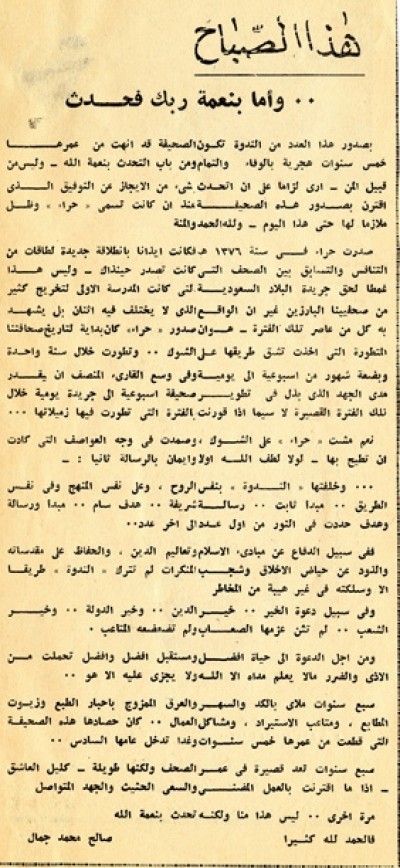 هذا الصباح
٠٠ وأما بنعمة ربك فحدث
بصدور هذا العدد من الندوة تكون الصحيفة قد انهت من عمرها
خمس سنوات هجرية بالوفاء والتمام ومن باب التحدث بنعمة الله ـ وليس من
قبيل المن ـ ارى لزاما على ان اتحدث شيء من الايجاز عن التوفيق الذى
اقترن بصدور هذه الصحيفة منذ ان كانت تسمى « حراء » وظل
ملازما لها حتى هذا اليوم ـ ولله الحمد والمنة
صدرت حراء فى سنة ١٣٧٦ هـ فكانت ايذانا بانطلاقة جديدة لطاقات من
التنافس والتسابق بين الصحف التى كانت تصدر حينذاك ـ وليس هذا
غمطا لحق جريدة البلاد السعودية التى كانت المدرسة الاولى لتخريج كثير
من صحفيينا البارزين غير ان الواقع الذى لا يختلف فيه اثنان بل يشهد
به كل من عاصر تلك الفترة ـ هو ان صدور « حراء » كان بداية لتاريخ صحافتنا
المتطورة التى اخذت تشق طريقها على الشوك ٠٠ وتطورت خلال سنة واحدة
وبضعة شهور من اسبوعية الى يومية وفى وسع القارىء المنصف ان يقدر
مدى الجهد الذى بذل فى تطوير صحيفة اسبوعية الى جريدة يومية خلال
تلك الفترة القصيرة لا سيما اذا قورنت بالفترة التى تطورت فيها زميلاتها ٠٠٠
نعم مشت « حراء » على الشوك ، وصمدت فى وجه العواصف التى كادت
ان تطيح بها ـ لولا لطف الله اولا وايمان بالرسالة ثانيا : ـ
٠٠٠ وخلفتها « الندوة » بنفس الروح ، وعلى نفس المنهج وفى نفس
الطريق ٠٠ مبدا ثابت ٠٠ رسالة شريفة ٠٠ هدف سام ٠٠ مبدا ورسالة
وهدف حددت فى النور من اول عدد الى اخر عدد ٠٠
ففى سبيل الدفاع عن مبادىء الاسلام وتعاليم الدين ، والحفاظ على مقدساته
والذود عن حياض الاخلاق وشجب المنكرات لم تترك « الندوة » طريقا
الا وسلكته فى غير هيبة من المخاطر
وفى سبيل دعوة الخير ٠٠ خير الدين ٠٠ وخير الدولة ٠٠ وخير
الشعب ٠٠ لم تثن عزمها الصعاب ولم تضعضعه المتاعب ٠
ومن اجل الدعوة الى حياة افضل ومستقبل افضل وافضل تحملت من
الاذى والضرر مالا يعلم مداه الا الله ولا يجزى عليه الا هو ٠٠
سبع سنوات ملاى بالكد والسهر والعرق الممزوج باحبار الطبع وزيوت
المطابع ، ومتاعب الاستيراد ، ومشاكل العمال ٠٠ كان حصادها هذه الصحيفة
التى قطعت من عمرها خمس سنوات وغدا تدخل عامها السادس ٠٠
سبع سنوات تعد قصيرة فى عمر الصحف ولكنها طويلة ـ كليل العاشق
ـ اذا ما اقترنت بالعمل المضنى والسعى الحثيث والجهد المتواصل
مرة اخرى ٠٠ ليس هذا منا ولكنه تحدث بنعمة الله
فالحمد لله كثيرا
صالح محمد جمال